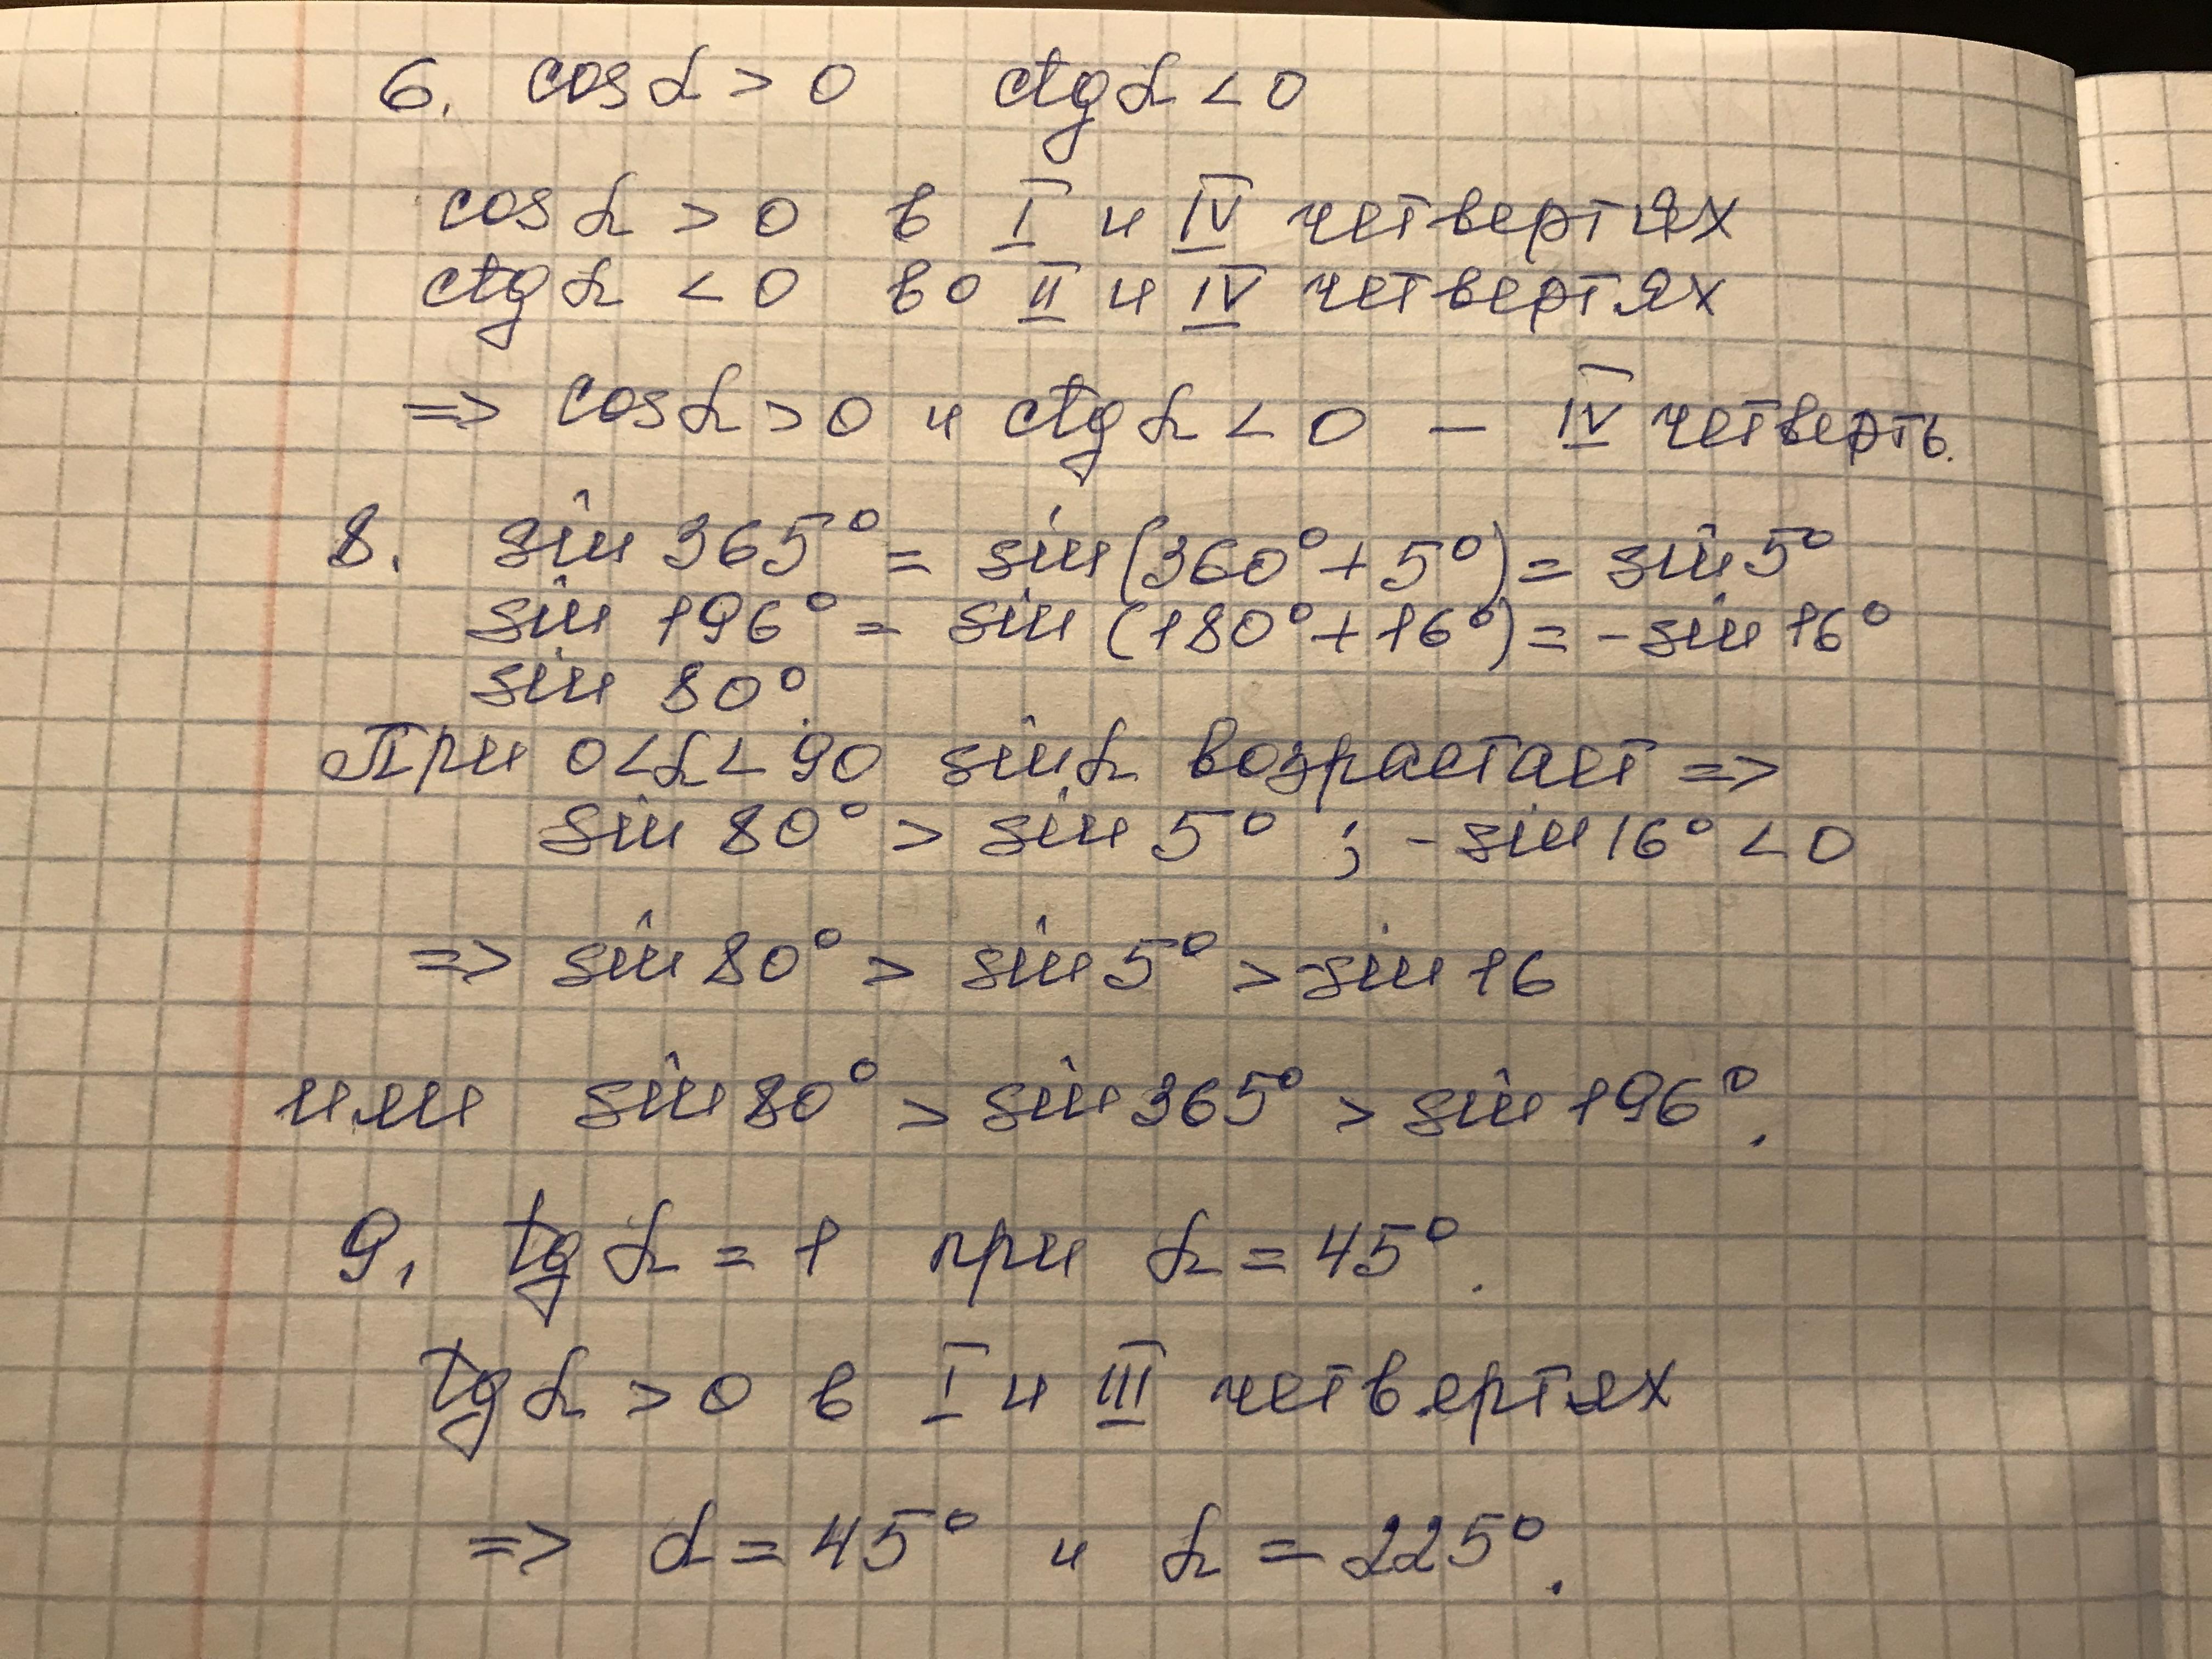 6. cos α > 0 ctg α < 0
cos α > 0 в I и IV четвертях
ctg α < 0 во II и IV четвертях
=> cos α > 0 и ctg α < 0 – IV четверть.
8. sin 365° = sin (360° + 5°) = sin 5°
sin 196° = sin (180° + 16°) = - sin 16°
sin 80°.
При 0 < α < 90 sin α возрастает =>
sin 80° > sin 5° ; - sin 16° < 0
=> sin 80° > sin 5° > -sin 16
или sin 80° > sin 365° > sin 196°.
9. tg α = 1 при α = 45°.
tg α > 0 в I и III четвертях
=> α = 45° и α = 225°.